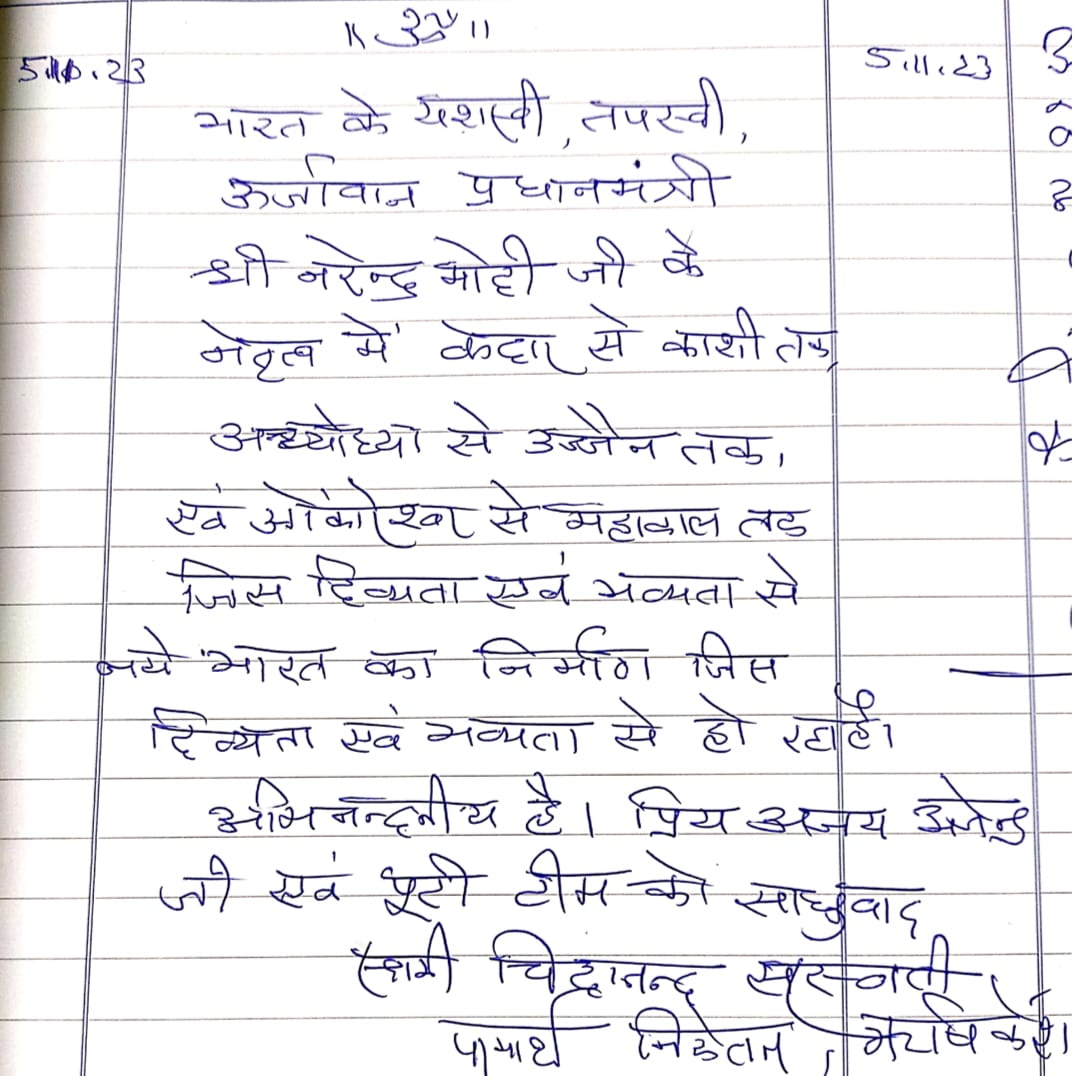 ॥ ॐ ॥
5.11.23
5.11.23
भारत के यशस्वी, तपस्वी,
ऊर्जावान प्रधानमंत्री
श्री नरेन्द्र मोदी जी के
नेतृत्व में केदार से काशी तक,
अयोध्या से उज्जैन तक,
एवं ओंकारेश्वर से महाकाल तक
जिस दिव्यता एवं भव्यता से
नये भारत का निर्माण जिस
दिव्यता एवं भव्यता से हो रहा है।
अभिनन्दनीय है। प्रिय अजय अजेन्द्र
जी एवं पूरी टीम को साधुवाद
स्वामी चिदानन्द सरस्वती,
परमार्थ निकेतन,